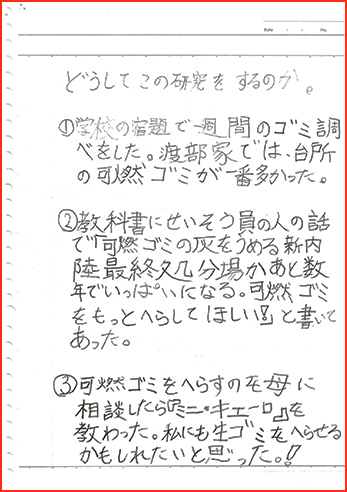 Date ・ ・ No.
どうしてこの研究をするのか。
①学校の宿題で一週間のゴミ調
べをした。渡部家では、台所
の可燃ゴミが一番多かった。
②教科書にせいそう員の人の話
で「可燃ゴミの灰をうめる新内
陸最終処分場があと数
年でいっぱいになる。可燃ゴミ
をもっとへらしてほしい！」と書いて
あった。
③可燃ゴミをへらすのを母に
相談したら『ミニ・キエーロ』を
教わった。私にも生ゴミをへらせる
かもしれたいと思った。！